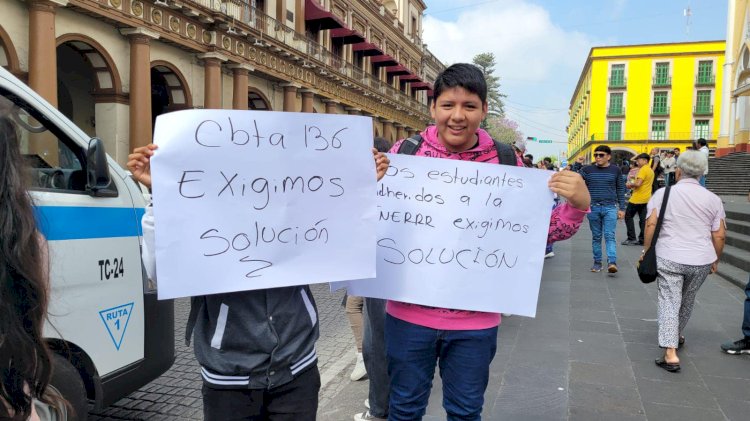 Cbta 136
Exigimos
Solución
os estudiantes
adheridos a la
ÑERRR exigimos
SOLUCIÓN
TC-24
RUTA
1